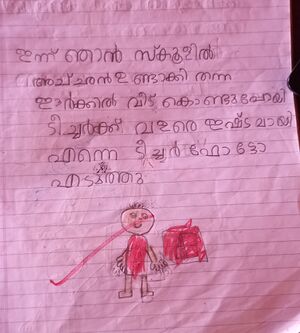 ഇന്ന് ഞാൻ സ്കൂളിൽ
അച്ചൻ ഉണ്ടാക്കി തന്ന
ഇർക്കിൽ വീട് കൊണ്ടുപോയി
ടീച്ചർക്ക് വളരെ ഇഷ്ടമായി
എന്നെ ടീച്ചർ ഫോട്ടോ
എടുത്തു